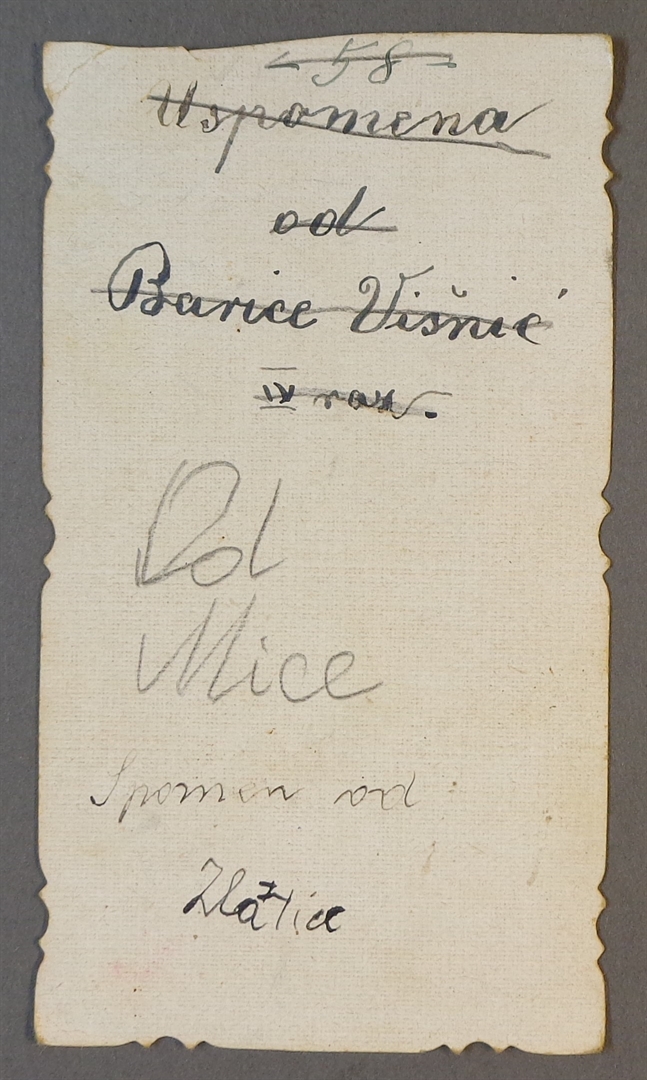 58
Uspomena
od
Barice Višnić
IV raz.
Od
Mice
Spomen od
Zlatice